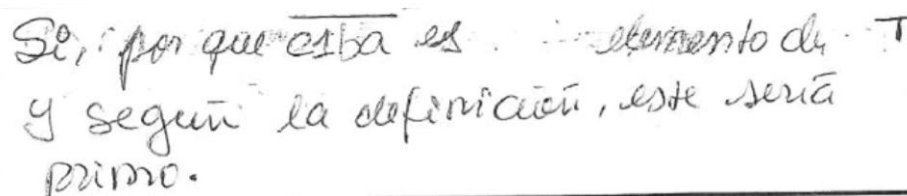 Si, por que c1ba es elemento de T
y según la definición, este sería
primo.